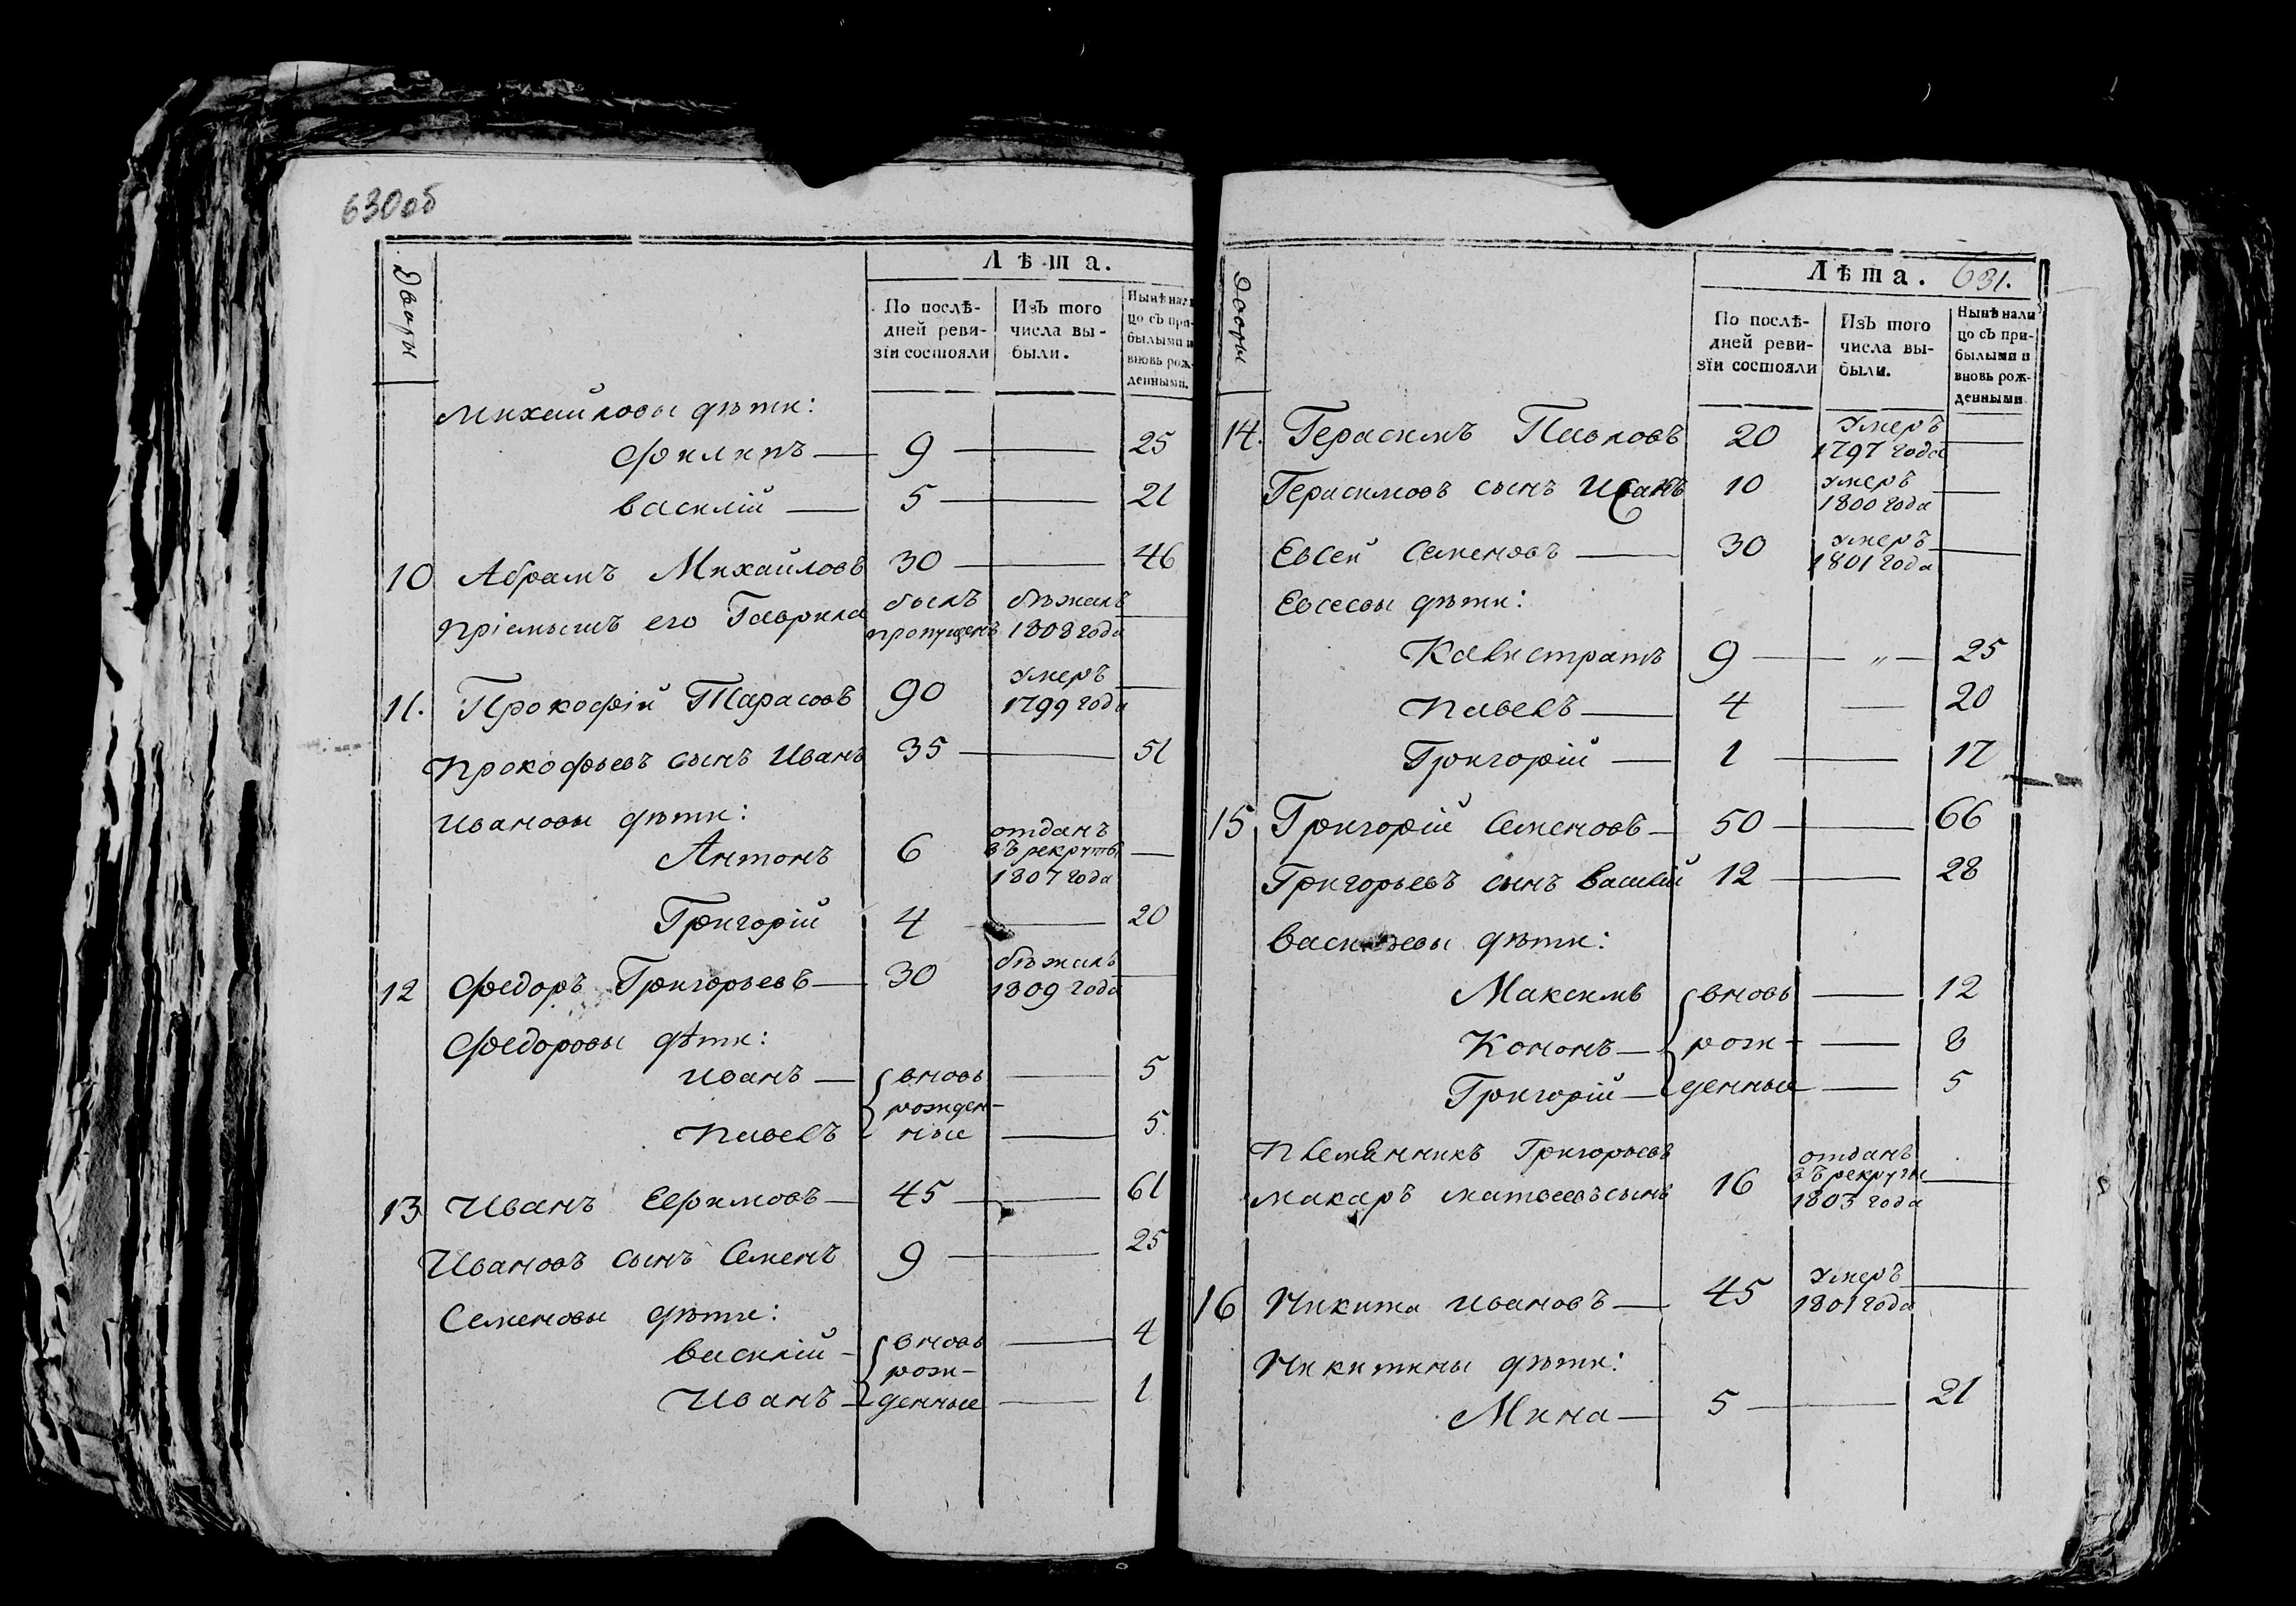 630об
Дворы
Лѣта.
По послѣ-
дней реви-
зїи состояли
Изъ того
числа вы-
были.
Нынѣ нали
цо съ при-
былыми и
вновь рож-
денными.
Михайловы дѣти:
Филипъ — 9 — 25
Василій — 5 — 21
10 Абрамъ Михайловъ 30 — 46
пріемышъ его Гаврила былъ пропущенъ бѣжалъ 1808 года —
11. Прокофій Тарасовъ 90 умеръ 1799 года —
Прокофьевъ сынъ Иванъ 35 — 51
Ивановы дѣти:
Антонъ 6 отданъ въ рекруты 1807 года —
Григорій 4 — 20
12 Федоръ Григорьевъ — 30 бѣжалъ 1809 года —
Федоровы дѣти:
Иванъ — вновь — 5
рожден-
Павелъ ные — 5
13 Иванъ Ефимовъ — 45 — 61
Ивановъ сынъ Семенъ 9 — 25
Семеновы дѣти:
Василій - вновь — 4
рож-
Иванъ - денные — 1
Дворы
Лѣта. 631.
По послѣ-
дней реви-
зїи состояли
Изъ того
числа вы-
были.
Нынѣ нали
цо съ при-
былыми и
вновь рож-
денными
14. Герасимъ Павловъ 20 умеръ 1797 года —
Герасимовъ сынъ Исакъ 10 умеръ 1800 года —
Евсей Семеновъ — 30 умеръ 1801 года —
Евсевы дѣти:
Калистратъ 9 — „ — 25
Павелъ — 4 — 20
Григорій — 1 — 17
15 Григорій Семеновъ — 50 — 66
Григорьевъ сынъ Василій 12 — 28
Васильевы дѣти:
Максимъ вновь — 12
Кононъ — рож- — 8
Григорій — денные — 5
Племянникъ Григорьевъ
Макаръ Матвеевъ сынъ 16 отданъ въ рекруты 1803 года —
16 Никита Ивановъ — 45 умеръ 1801 года —
Никитины дѣти:
Мина — 5 — 21